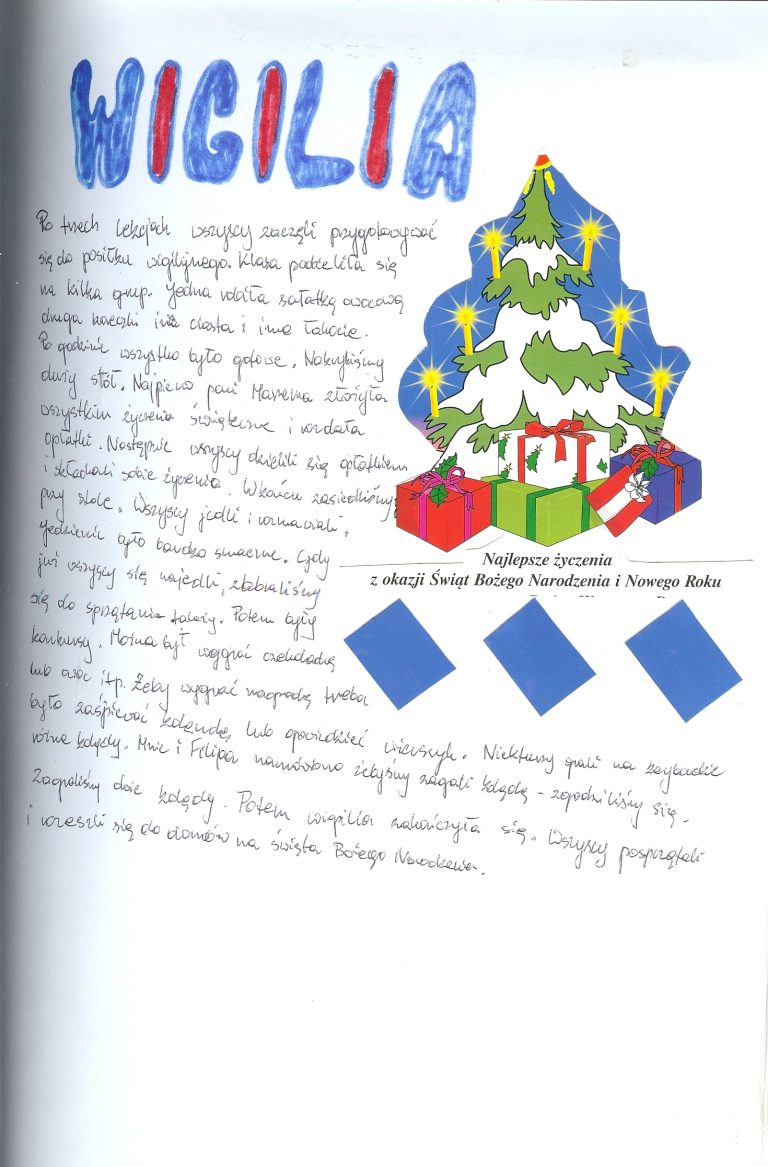 WIGILIA
Po trzech lekcjach wszyscy zaczęli przygotowywać
się do posiłku wigilijnego. Klasa podzieliła się
na kilka grup. Jedna robiła sałatkę owocową
druga kanapki inna ciasta i inne łakocie.
Po godzinie wszystko było gotowe. Nakryliśmy
duży stół. Najpierw pani Marzena złożyła
wszystkim życzenia świąteczne i rozdała
opłatki. Następnie wszyscy dzielili się opłatkiem
i składali sobie życzenia. W końcu zasiedliśmy
przy stole. Wszyscy jedli i rozmawiali.
Jedzenie było bardzo smaczne. Gdy
już wszyscy się najedli, zabraliśmy
się do sprzątania talerzy. Potem były
konkursy. Można był wygrać czekoladkę
lub owoc itp. Żeby wygrać nagrodę trzeba
było zaśpiewać kolendę lub opowiedzieć wierszyk. Niektórzy grali na keybadzie
różne kolędy. Mnie i Filipa namówiono żebyśmy zagrali kolędę - zgodziliśmy się.
Zagraliśmy dwie kolędy. Potem wigilia zakończyła się. Wszyscy posprzątali
i rozeszli się do domów na święta Bożego Narodzenia.
Najlepsze życzenia
z okazji Świąt Bożego Narodzenia i Nowego Roku